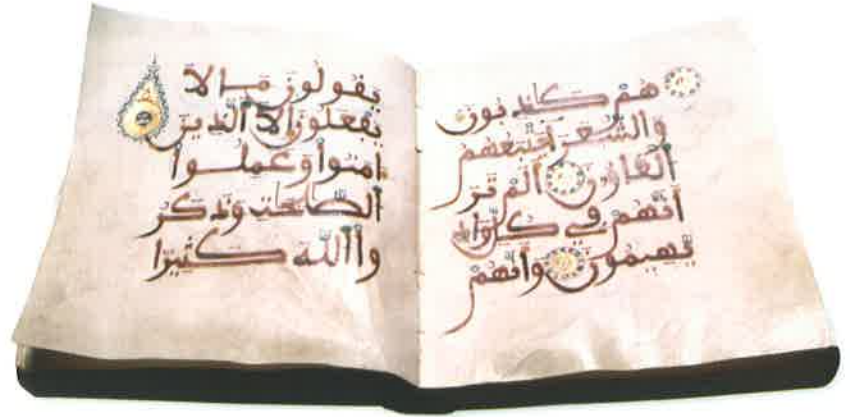 هُمْ كَٰذِبُونَ
وَالشُّعَرَآءُ يَتَّبِعُهُمُ
الْغَاوُۥنَ أَلَمْ تَرَ
أَنَّهُمْ فِي كُلِّ وَادٍ
يَهِيمُونَ وَأَنَّهُمْ
يَقُولُونَ مَا لَا
يَفْعَلُونَ إِلَّا الَّذِينَ
ءَامَنُوا وَعَمِلُوا
الصَّٰلِحَٰتِ وَذَكَرُ
وا اللَّهَ كَثِيرًا